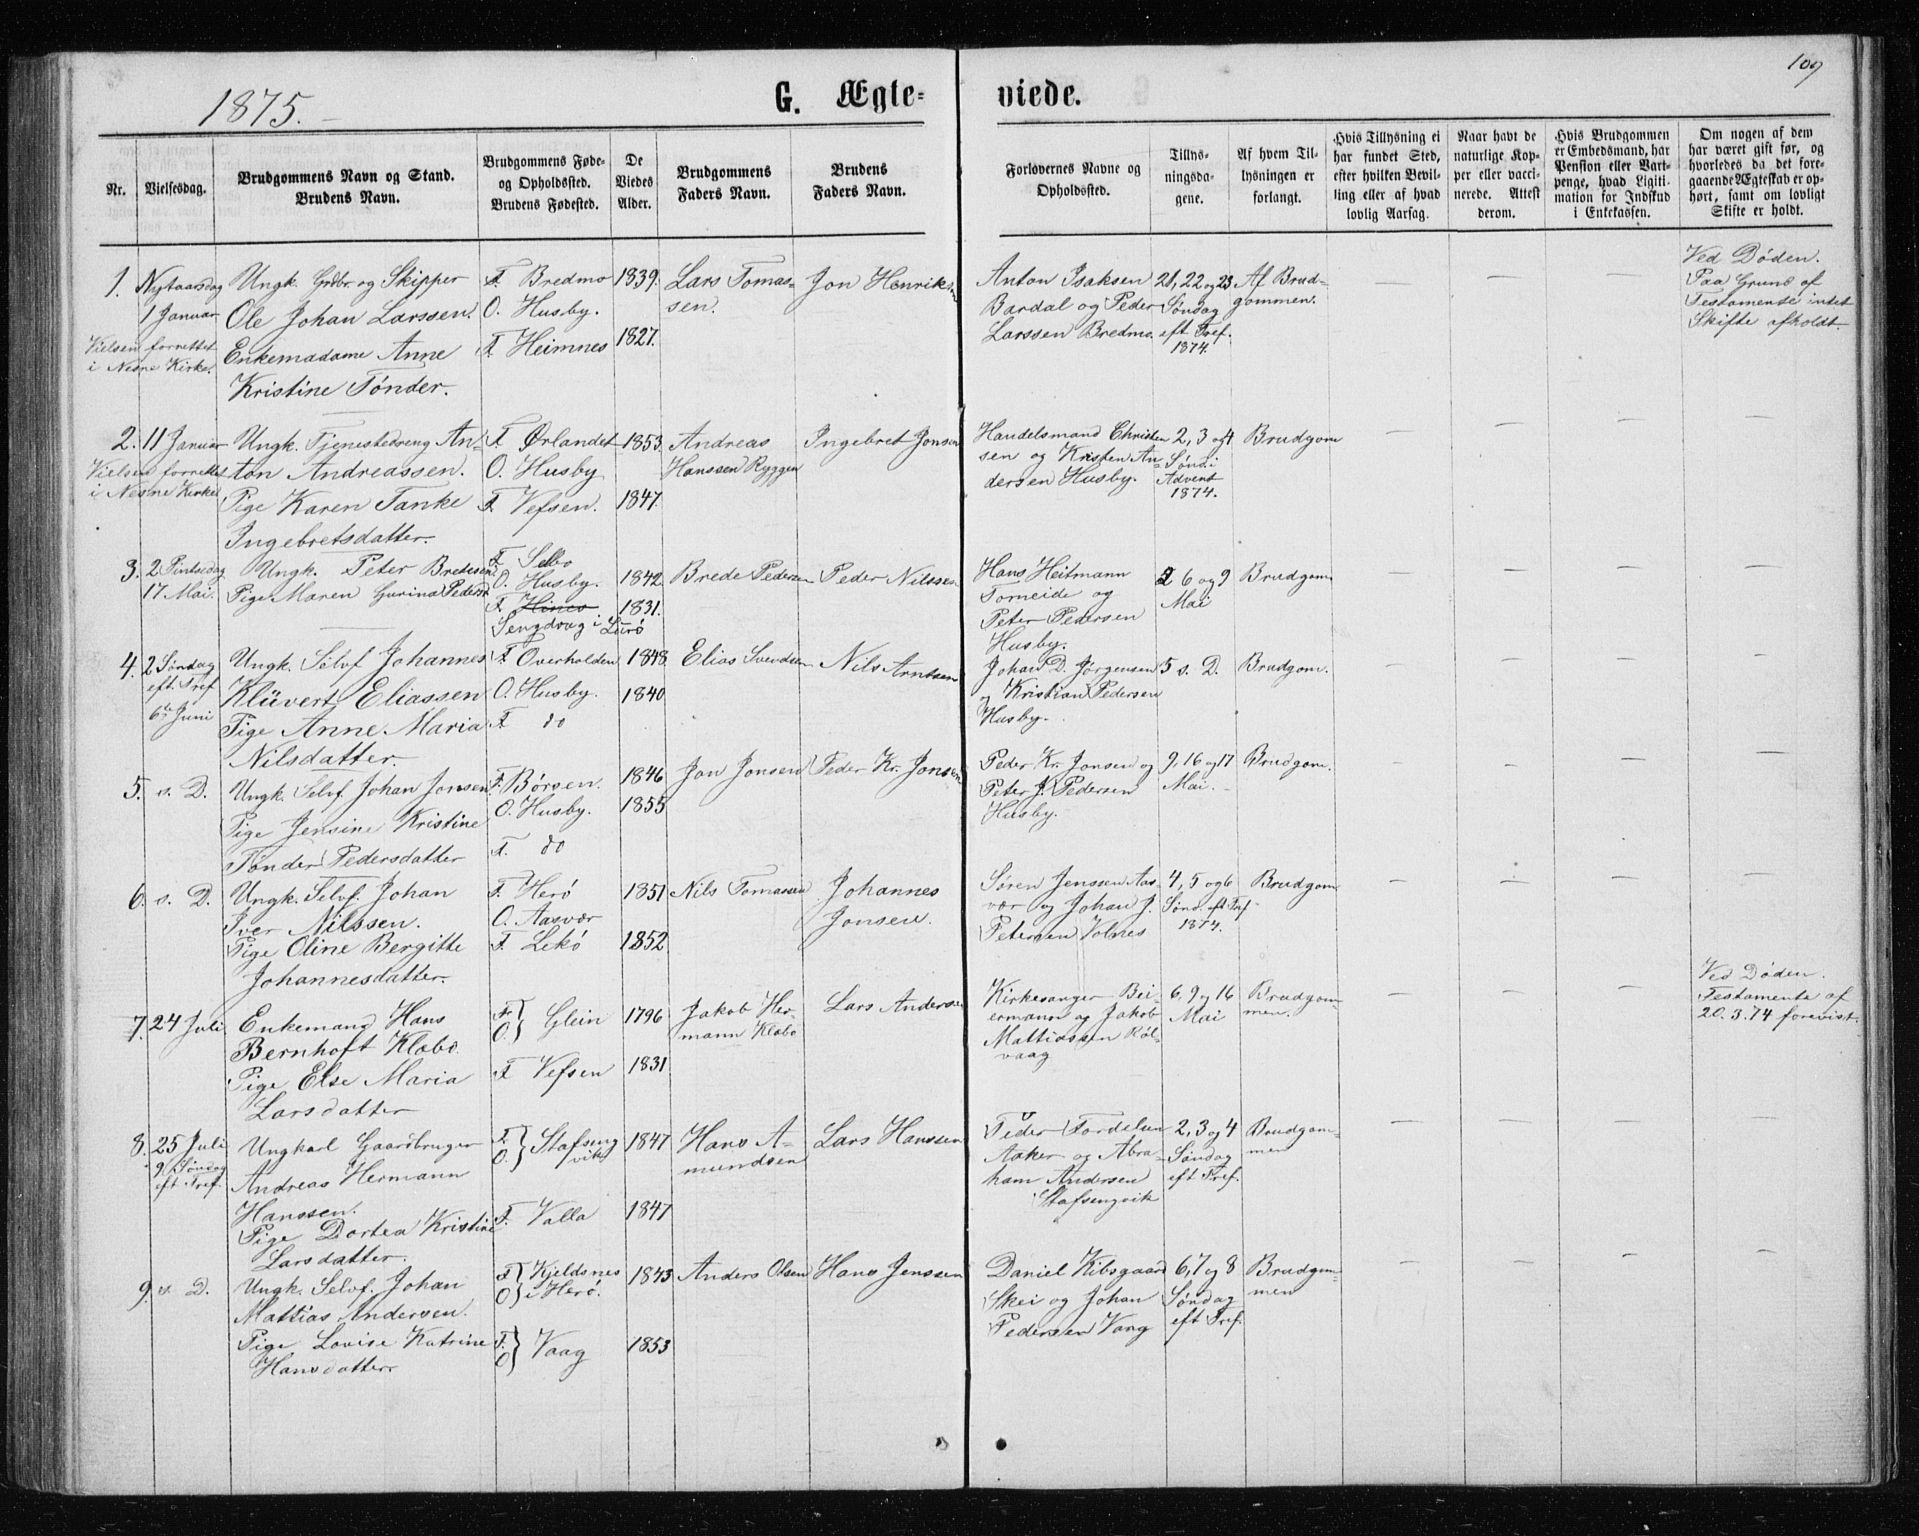 109
1875.
G. Ægte-
viede.
Nr.
Vielsesdag.
Brudgommens Navn og Stand.
Brudens Navn.
Brudgommens Føde-
og Opholdssted.
Brudens Fødested.
De
Viedes
Alder.
Brudgommens
Faders Navn.
Brudens
Faders Navn.
Forlovernes Navne og
Opholdssted.
Tillys-
ningsda-
gene.
Af hvem Til-
lysningen er
forlangt.
Hvis Tillysning ei
har fundet Sted,
efter hvilken Bevil-
ling eller af hvad
lovlig Aarsag.
Naar havt de
naturlige Kop-
per eller vacci-
nerede. Attest
derom.
Hvis Brudgommen
er Embedsmand, har
Pension eller Vart-
penge, hvad Ligiti-
mation for Indskud
i Enkekassen.
Om nogen af dem
har været gift før, og
hvorledes da det fore-
gaaende Ægteskab er op-
hørt, samt om lovligt
Skifte er holdt.
1.
Nytaarsdag
1 Januar
Vielsen forrettet
i Nesne Kirke.
Ungk. Grdbr. og Skipper
Ole Johan Larssen.
Enkemadame Anne
Kristine Tønder.
F. Bredmo
O. Husby.
F. Heimnes
1839.
1827.
Lars Tomas-
sen.
Jon Henriksen
Anton Isaksen
Bardal og Peder
Larssen Bredmo.
21, 22 og 23
Søndag
eft Tref.
1874.
Af Brud-
gommen.
—
—
—
Ved Døden.
Paa Grund af
Testamente intet
Skifte afholdt.
2.
11 Januar
Vielsen forrettet
i Nesne Kirke
Ungk. Tjenestedreng An-
ton Andreassen.
Pige Karen Tanke
Ingebretsdatter.
F. Ørlandet
O. Husby
F. Vefsen.
1853.
1847.
Andreas
Hanssen Ryggen
Ingebret Jonsen
Handelsmand Christen
sen og Kristen An-
dersen Husby.
2, 3 og 4
Sønd. i
Advent
1874.
Brudgom
—
—
—
—
3.
2 Pintsedag
17 Mai.
Ungk. Peter Bredesen
Pige Maren Gurina Pedersd
F. Selbo
O. Husby.
F. Hines
Sengdrag i Lurø
1842
1831.
Brede Pedersen
Peder Nilssen
Hans Heitmann
Torneide og
Peter Pedersen
Husby.
2 6 og 9
Mai
Brudgom
—
—
—
—
4.
2 Søndag
eft. Tref
6te Juni
Ungk. Selvf Johannes
Klüvert Eliassen
Pige Anne Maria
Nilsdatter.
F. Overholden
O. Husby.
F. do
1848.
1840
Elias Svendsen
Nils Arntsen
Johan D. Jørgensen
og Kristian Pedersen
Husby.
5 s. D.
Brudgom.
—
—
—
—
5.
s. D.
Ungk. Selvf. Johan Jonsen
Pige Jensine Kristine
Tønder Pedersdatter
F. Børsen.
O. Husby.
F. do
1846
1855
Jon Jonsen
Peder Kr. Jonsen
Peder Kr. Jonsen og
Peter J. Pedersen
Husby.
9, 16 og 17
Mai.
Brudgom.
—
—
—
—
6.
s. D.
Ungk. Selvf. Johan
Iver Nilssen.
Pige Oline Bergitte
Johannesdatter.
F. Herø
O. Aasvær
F. Lekø
1851
1852
Nils Tomassen
Johannes
Jonsen.
Søren Jenssen Aas-
vær og Johan J.
Petersen Volnes
4, 5 og 6
Sønd. eft Tref
1874.
Brudgom
—
—
—
—
7.
24 Juli
Enkemand Hans
Bernhoft Klæbo.
Pige Else Maria
Larsdatter
F. O. } Glein
F. Vefsen
1796
1831
Jakob Her-
mann Klæbo
Lars Andersen
Kirkesanger Bei-
ermann og Jakob
Mattiassen Røl-
vaag
6, 9 og 16
Mai
Brudgom-
men.
—
—
—
Ved Døden.
Testamente af
20.3.74 forevist.
8.
25 Juli
9. Søndag
eft Tref.
Ungkarl Gaardbruger
Andreas Hermann
Hanssen.
Pige Dortea Kristine
Larsdatter.
F. O. } Stafseng
vik
F. Valla
1847
1847
Hans A-
mundsen
Lars Hanssen
Peder Tordelsen
Aaker og Abra-
ham Andersen
Stafsengvik
2, 3 og 4
Søndag
eft Tref.
Brudgom-
men
—
—
—
—
9.
s. D.
Ungk. Selvf. Johan
Mattias Andersen.
Pige Lovise Katrine
Hansdatter
F. O. } Kjeldsnes
i Herø.
F. O. } Vaag
1843
1853
Anders Olsen
Hans Jenssen
Daniel Kibsgaard
Skei og Johan
Pedersen Vang
6, 7 og 8
Søndag
eft Tref.
Brudgom-
men
—
—
—
—